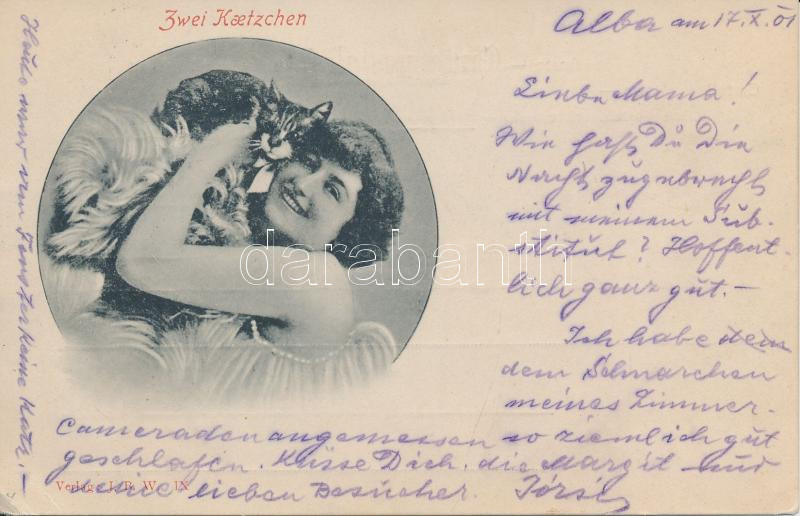 Zwei Kætzchen
Alba am 17.X.01
Liebe Mama!
Wie hast Du Die
Nacht zugebracht
mit meinem Sub-
stitut? Hoffent-
lich ganz gut.-
Ich habe
dem Schnarchen
meines Zimmer-
Cameraden angemessen so ziemlich gut
geschlafen. Küsse Dich, die Margit und
deine lieben Besucher.
nur vom Fenster keine Katz.-
Verlag: J. R. W. IX
darabanth